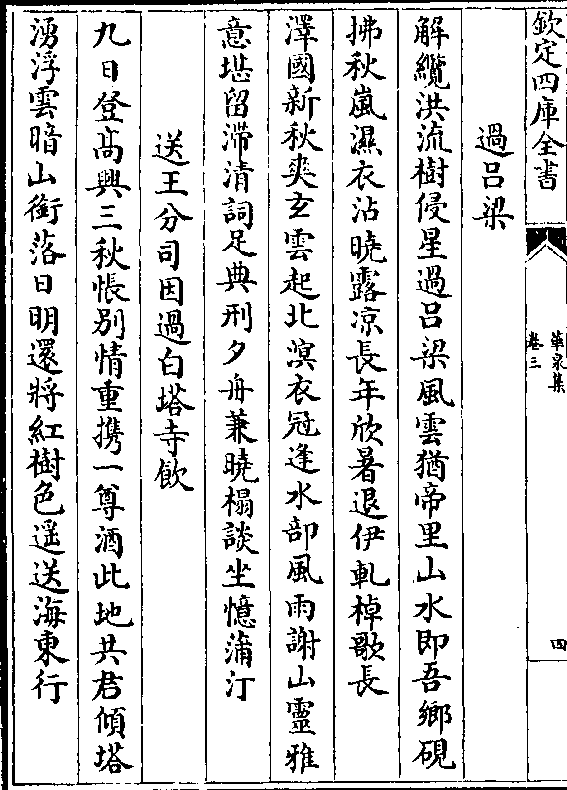 欽定四庫全書
華泉集
卷三
四
過吕梁
解纜洪流樹侵星過吕梁風雲猶帝里山水即吾鄉硯
拂秋嵐濕衣沾曉露凉長年欣暑退伊軋棹歌長
澤國新秋爽玄雲起北溟衣冠逢水部風雨謝山靈雅
意堪留滯清詞足典刑夕舟兼曉榻談坐憶蒲汀
送王分司因過白塔寺飲
九日登高興三秋悵别情重携一尊酒此地共君傾塔
湧浮雲暗山銜落日明還將紅樹色遥送海東行